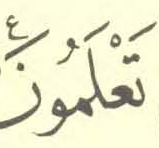 تَعْلَمُونَ ع